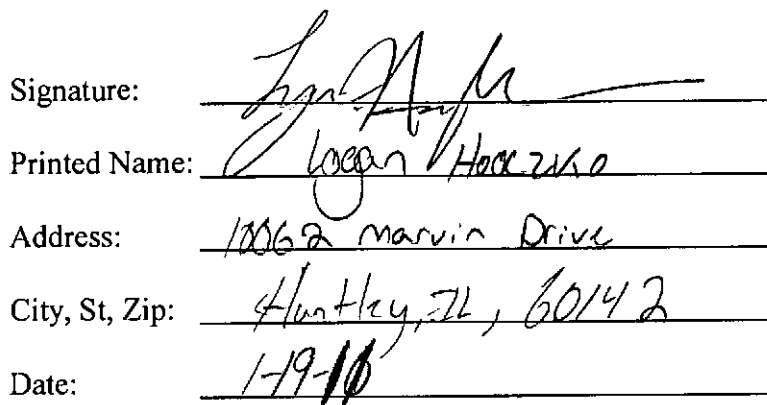 Signature:
Printed Name: Logan
Address: 10062 Marvin Drive
City, St, Zip: Huntley, IL, 60142
Date: 1-19-